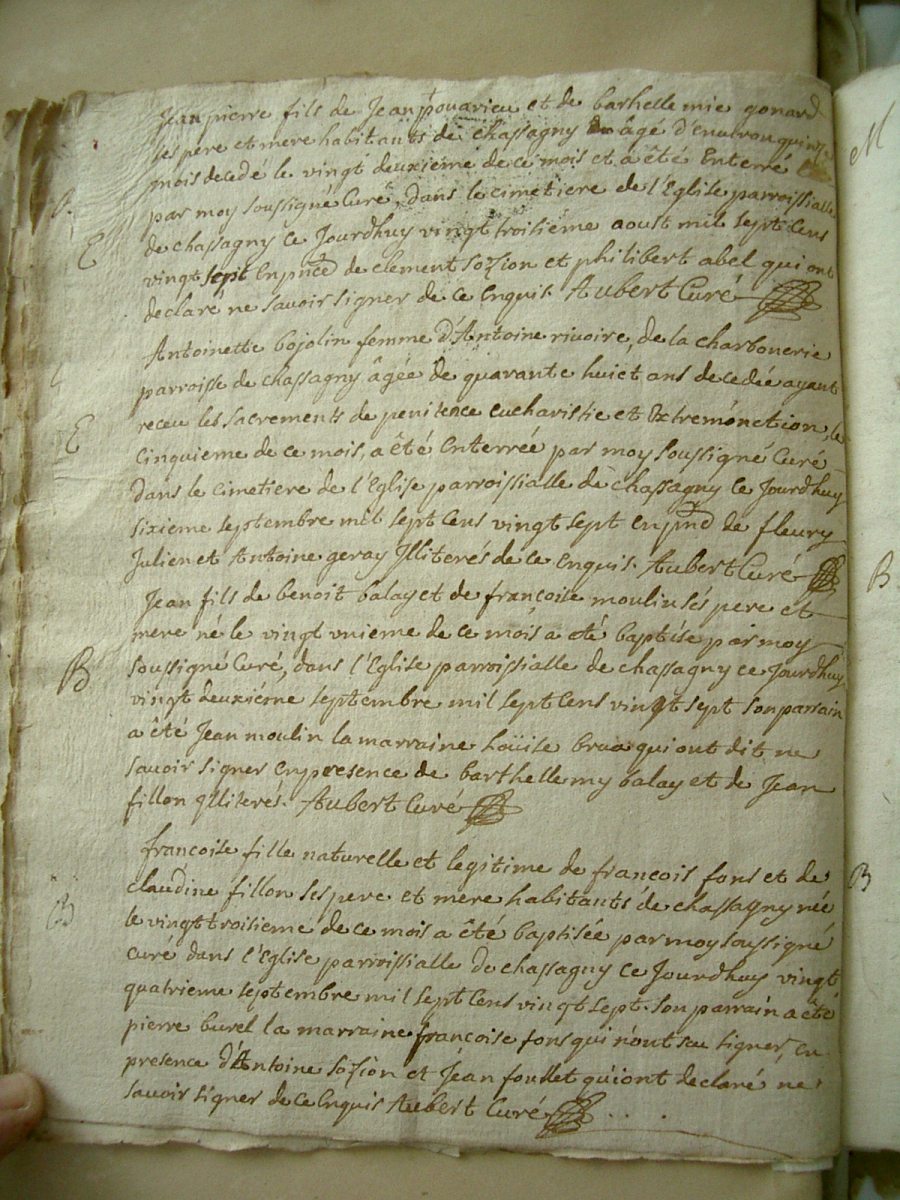 Jean pierre fils de Jean pouarieu et de barthellemie gonard
ses pere et mere habitants de chassagny âgé d'environ quinze
mois decedé le vingt deuxieme de ce mois et a êté Enterré
par moy soussigné Curé, dans le cimetiere de l'Eglise parroissialle
E
de chassagny ce Jourdhuy vingt troisième aoust mil sept Cens
vingt sept En pnce de clement sozion et philibert abel qui ont
declaré ne savoir signer de ce Enquis. Aubert Curé
Antoinette bojolin femme d'Antoine rivoire, de la charbonerie
parroisse de chassagny âgée de quarante huict ans decedée ayant
receu les sacrements de penitence eucharistie et Extremônction, le
E
cinquieme de ce mois, a êté Enterrée par moy soussigné Curé
Dans le cimetiere de l'Eglise parroissialle de chassagny ce Jourdhuy
sixieme septembre mil sept Cens vingt sept En pnce de fleury
Julien et Antoine geray Illiterés de ce Enquis. Aubert Curé
B
Jean fils de benoit balay et de françoise moulin ses pere et
mere né le vingt vnieme de ce mois a eté baptise par moy
B
soussigné Curé, dans l'Eglise parroissialle de chassagny ce Jourdhuy
vingt deuxiéme septembre mil sept Cens vingt sept son parrain
a êté Jean moulin la marraine loüise qui ont dit ne
savoir signer en presence de barthellemy balay et de Jean
fillon Illiterés. Aubert Curé
francoise fille naturelle et legitime de francois fons et de
B
claudine fillon ses pere et mere habitants de chassagny née
B
le vingt troisieme de ce mois a êté baptisée par moy soussigné
curé dans l'Eglise parroissialle de chassagny ce Jourdhuy vingt
quatrieme septembre mil sept Cens vingt sept. son parrain a êté
pierre burel la marraine francoise fons qui n'ont seu signer, en
presence d'Antoine sozion et Jean foullet qui ont declaré ne
savoir signer de ce Enquis Aubert Curé